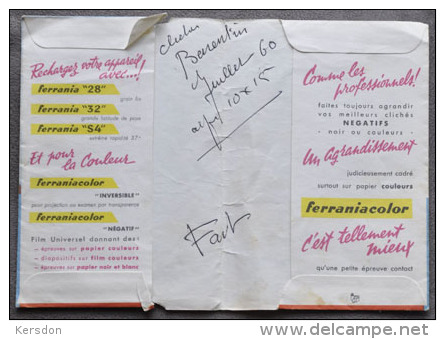 Rechargez votre appareil
avec...!
ferrania "28"
grain fin
ferrania "32"
grande latitude de pose
ferrania "S4"
extrême rapidité 37°
Et pour
la Couleur
ferraniacolor
"INVERSIBLE"
pour projection ou examen par transparence
ferraniacolor
"NÉGATIF"
Film Universel donnant des:
— épreuves sur papier couleurs
— diapositifs sur film couleurs
— épreuves sur papier noir et blanc
clichés
Barentin
Juillet 60
10 x 15
Fait
Comme les
professionnels!
faites toujours agrandir
vos meilleurs clichés
NÉGATIFS
- noir ou couleurs -
Un Agrandissement
judicieusement cadré
surtout sur papier couleurs
ferraniacolor
c'est tellement
mieux
qu'une petite épreuve contact
Kersdon
www.delcampe.net